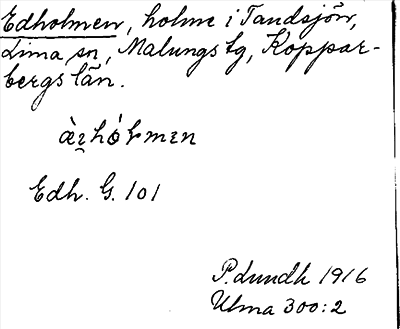 Edholmen, holme i Tandsjön,
Lima sn, Malungs tg, Koppar-
bergs län.
Edh. G. 101
P. Lundh 1916
Ulma 300:2